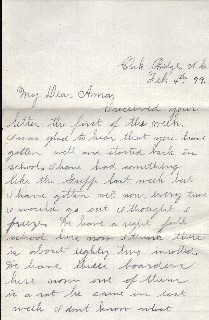 Feb. 4th 99.
My Dear Anna,
I received your
letter the first of the week.
I was glad to hear that you had
gotten well and started back in
school. I have had something
like the Gripp last week but
I have gotten well now. every time
I would go out I thought I
freeze. We have a right full
school here now I think there
is about eighty two in school.
We have three boarders
here now one of them
is a rat he came in last
week I don't know what